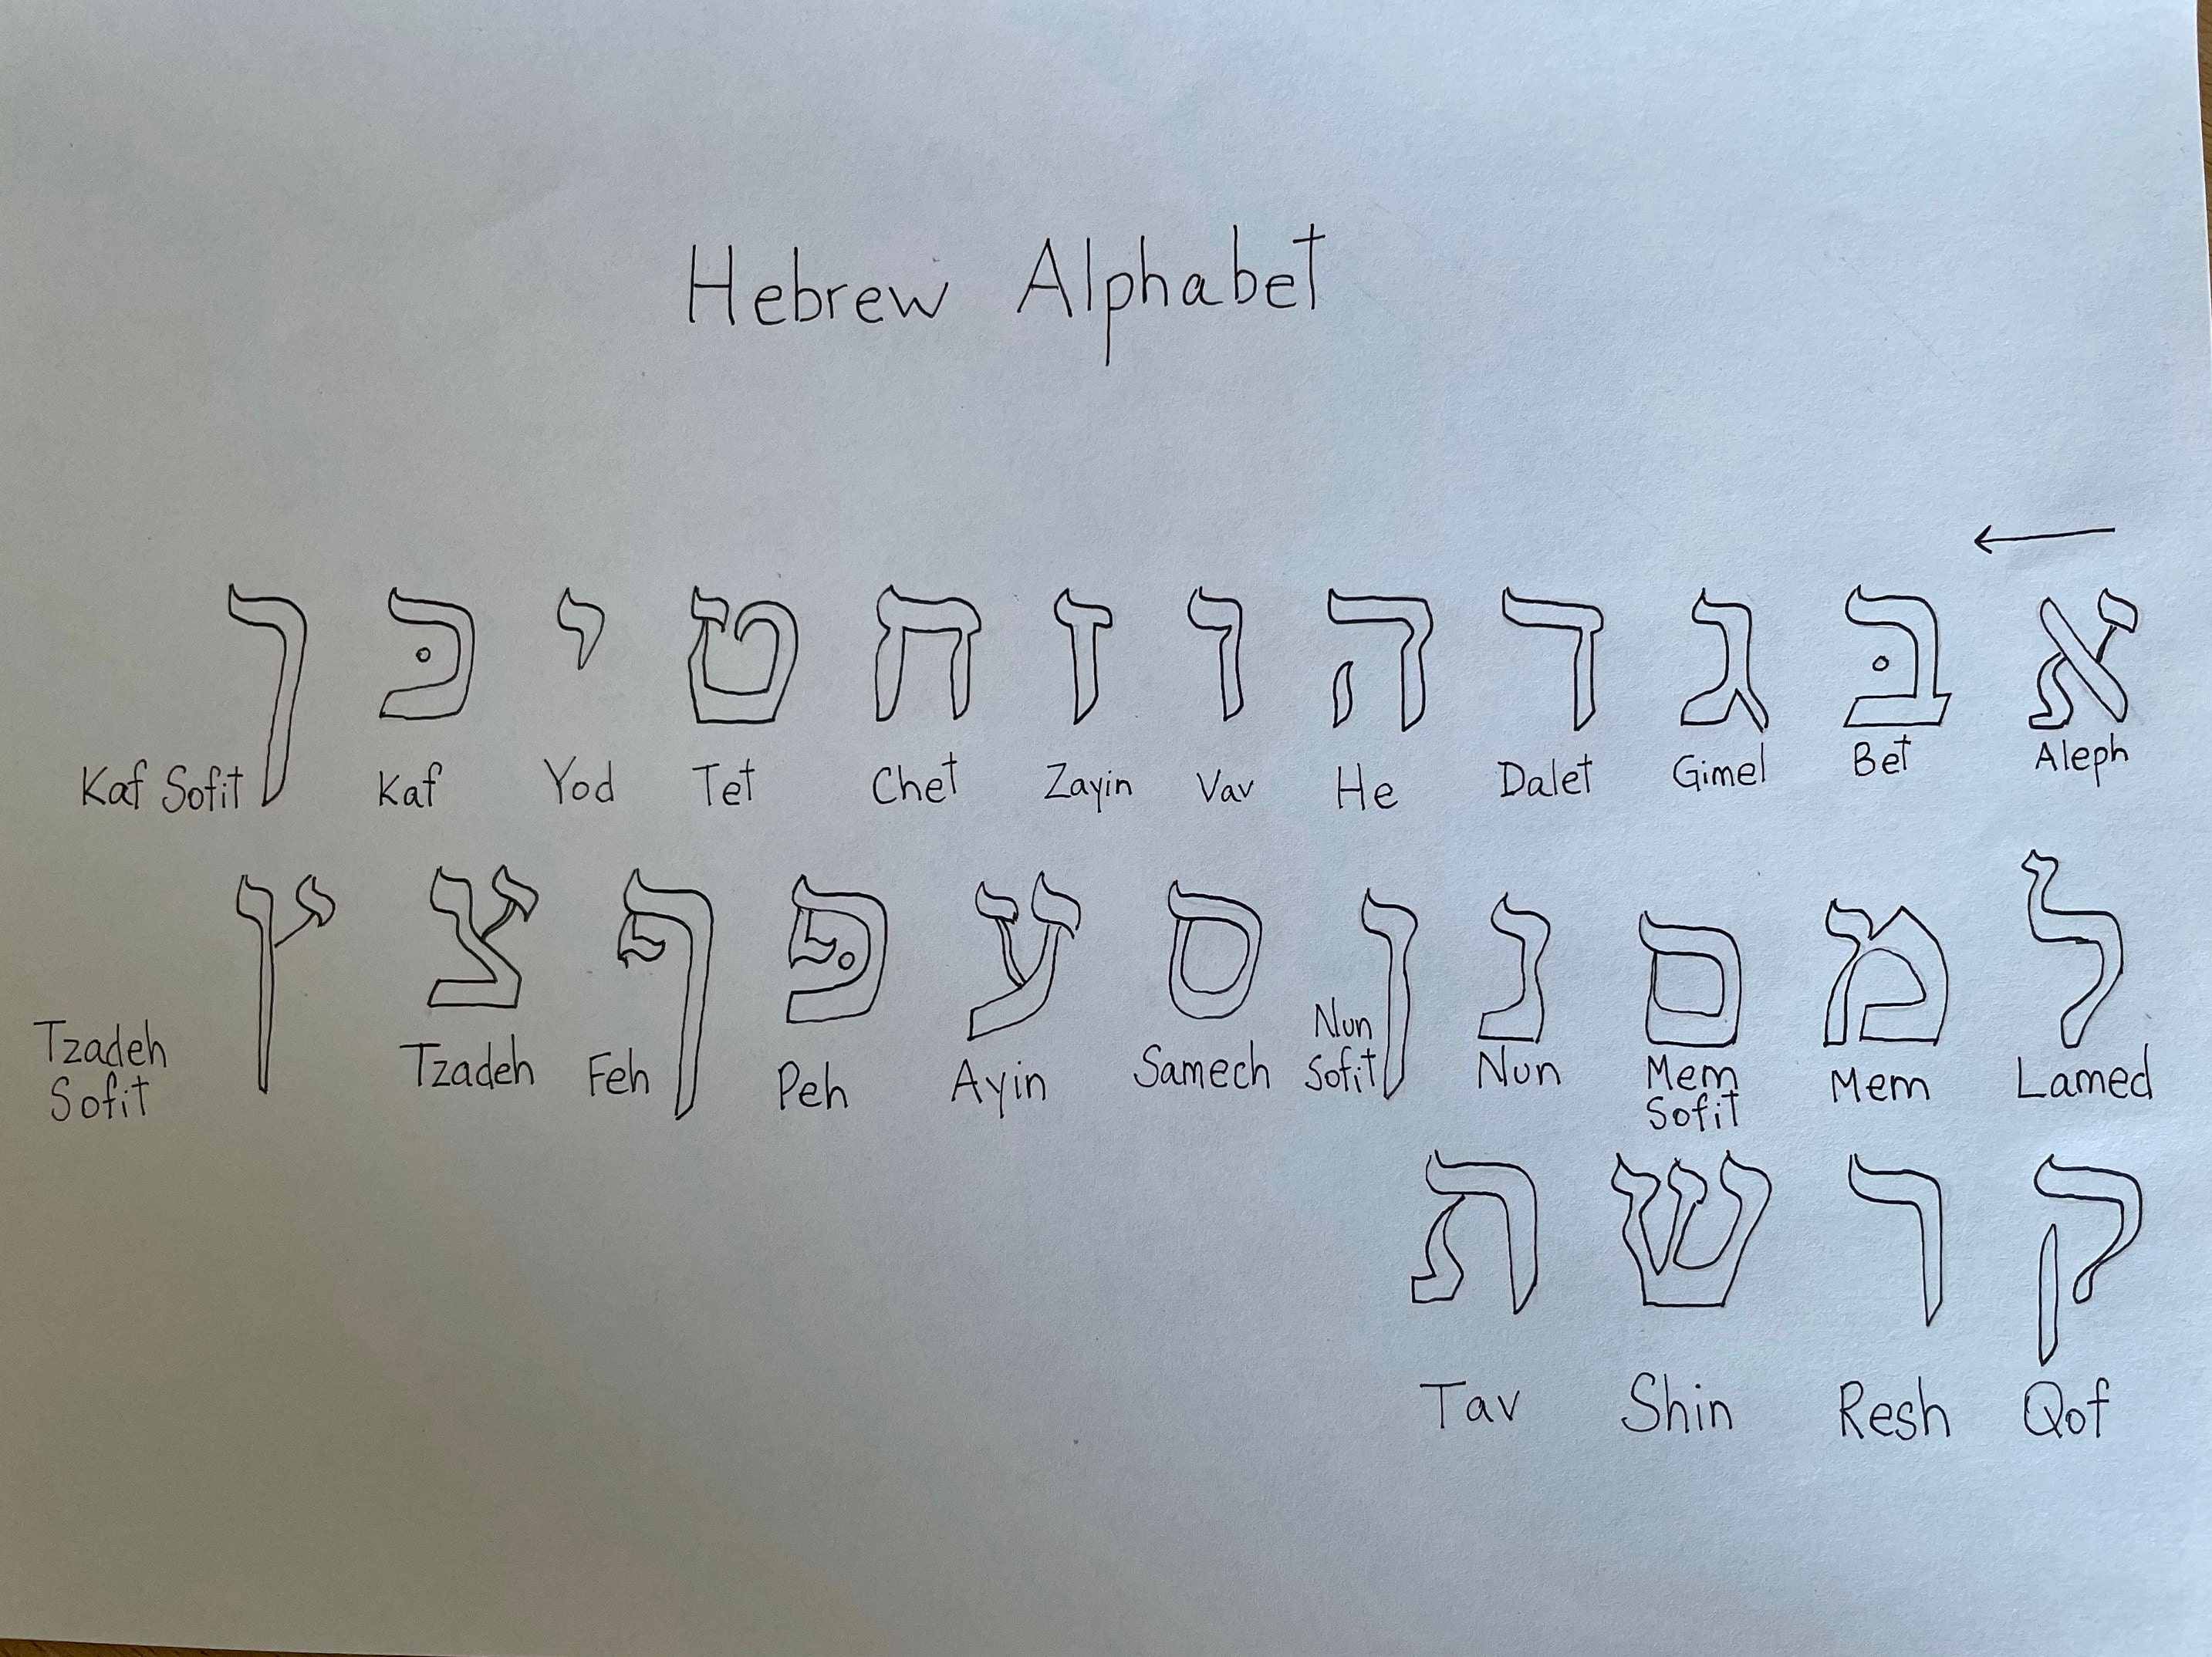 Hebrew Alphabet
א בּ ג ד ה ו ז ח ט י כּ ך
Aleph Bet Gimel Dalet He Vav Zayin Chet Tet Yod Kaf Kaf Sofit
ל מ ם נ ן ס ע פּ ף צ ץ
Lamed Mem Mem Sofit Nun Nun Sofit Samech Ayin Peh Feh Tzadeh Tzadeh Sofit
ק ר ש ת
Qof Resh Shin Tav